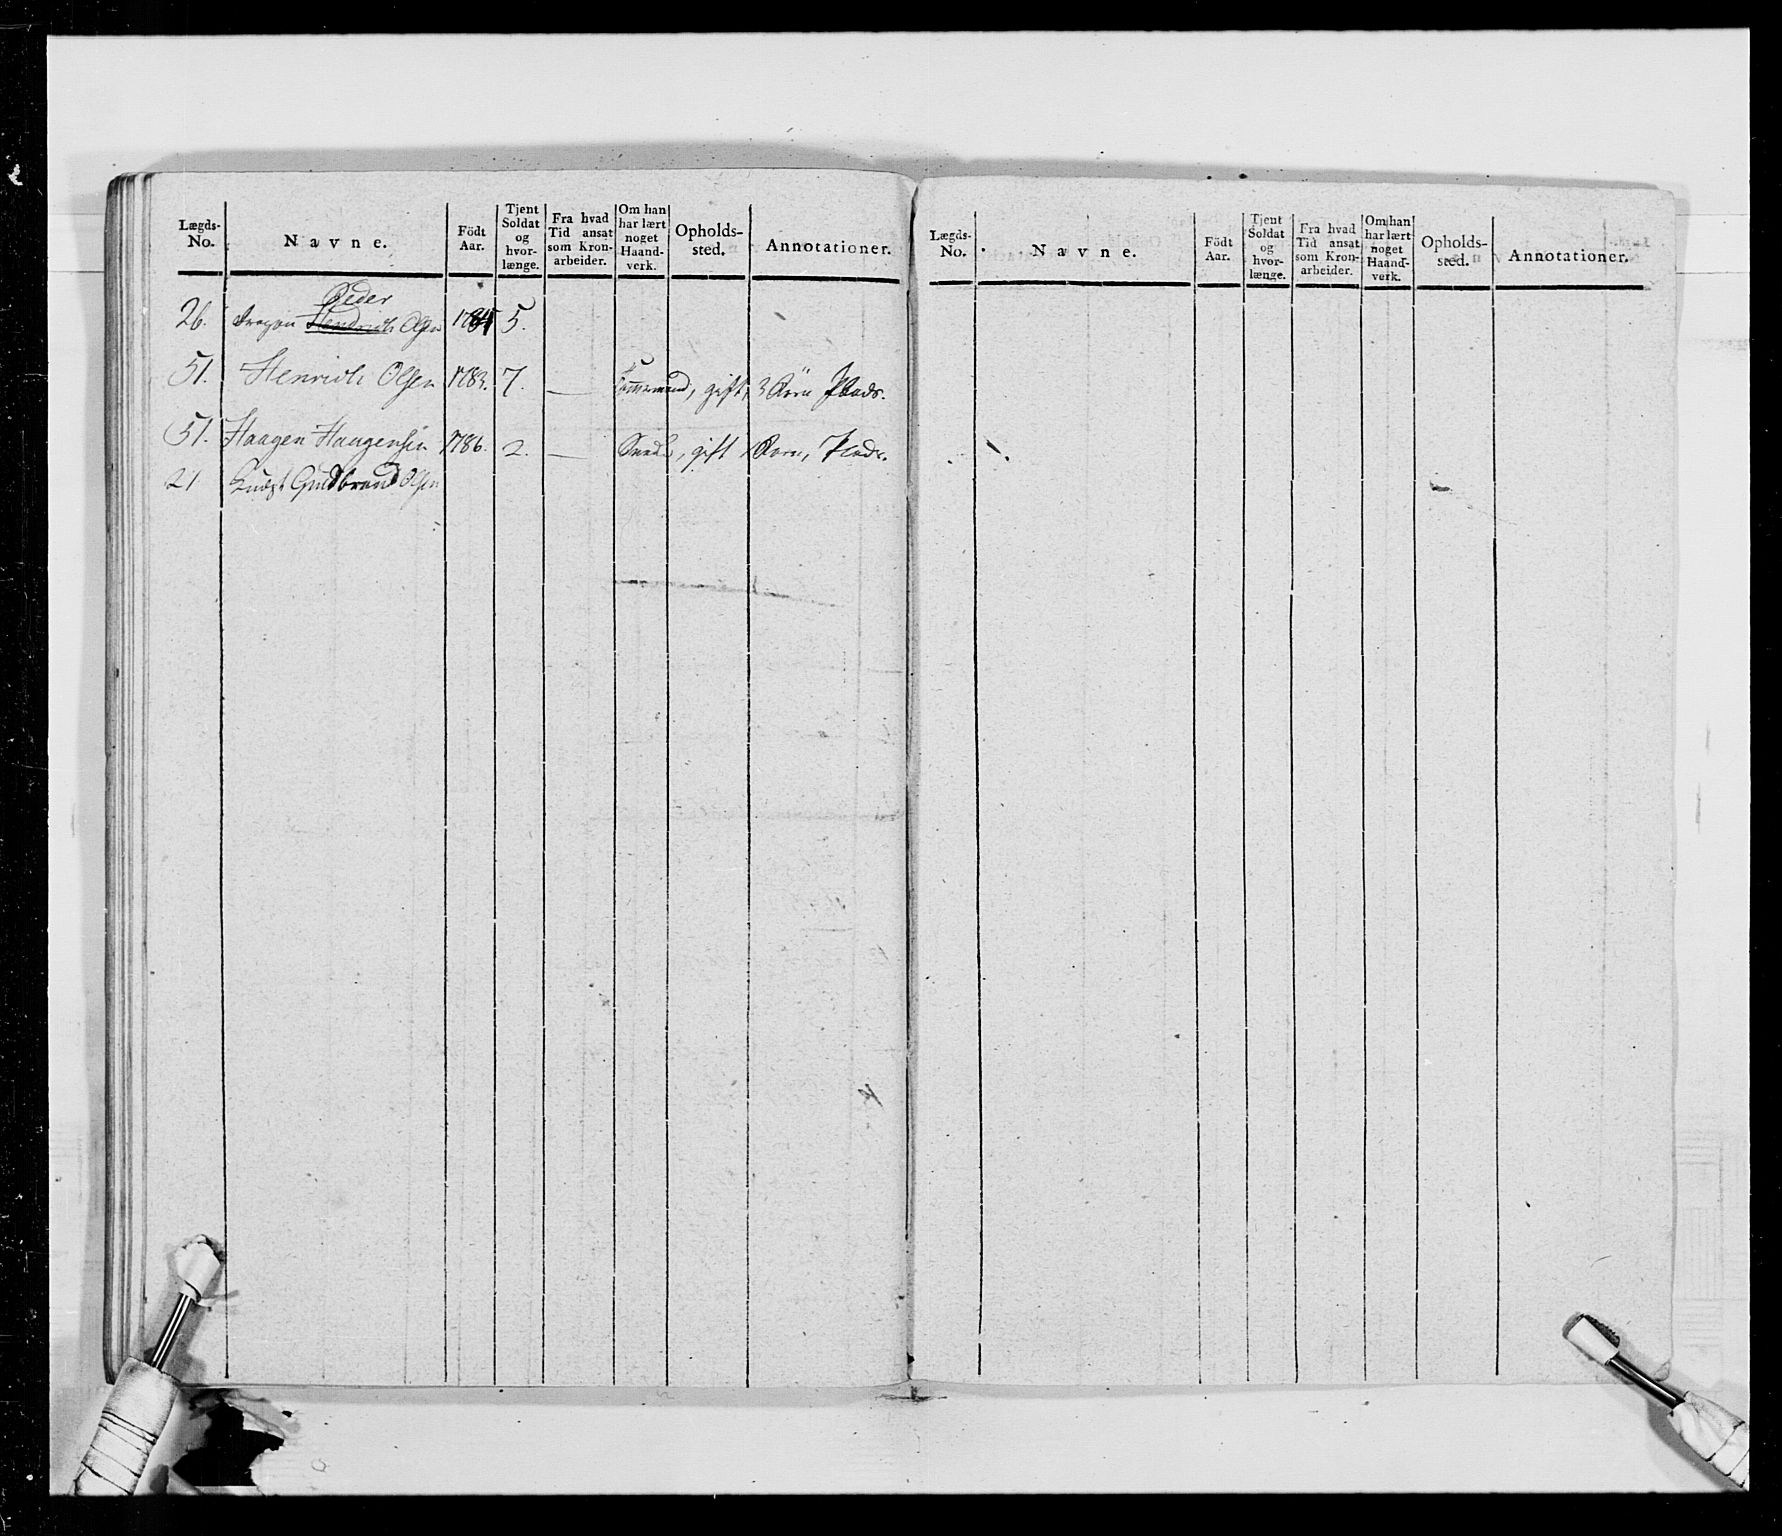 Lægds-No. Navne. Födt Aar. Tjent Soldat og hvor-længe. Fra hvad Tid ansat som Kron-arbeider. Om han har lært noget Haand-verk. Opholds-sted. Annotationer.
Peder
26. Dragon Hendrich Olsen 1784 5.
51. Henrich Olsen 1783. 7. — Tömmermand, gift, 3 Börn Plads.
51. Haagen Haugensen 1786. 2. — gift 1 Barn, Plads.
21 Gudbrand Olsen
Lægds-No. Navne. Födt Aar. Tjent Soldat og hvor-længe. Fra hvad Tid ansat som Kron-arbeider. Om han har lært noget Haand-verk. Opholds-sted. Annotationer.